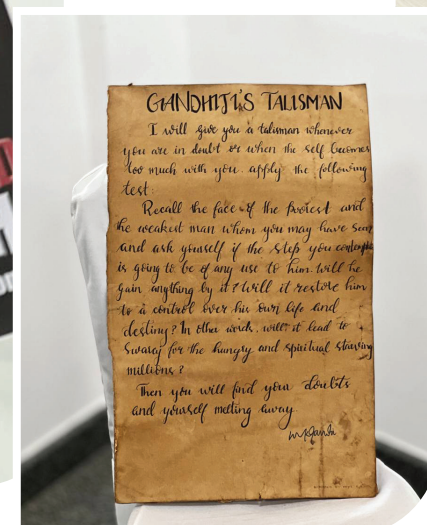 GANDHIJI'S TALISMAN
I will give you a talisman whenever
you are in doubt or when the self becomes
too much with you. apply the following
test:
Recall the face of the poorest and
the weakest man whom you may have seen
and ask yourself if the step you contemplate
is going to be of any use to him. Will he
gain anything by it? Will it restore him
to a control over his own life and
destiny? In other words, will it lead to
Swaraj for the hungry and spiritual starving
millions?
Then you will find your doubts
and yourself melting away.
MKGandhi